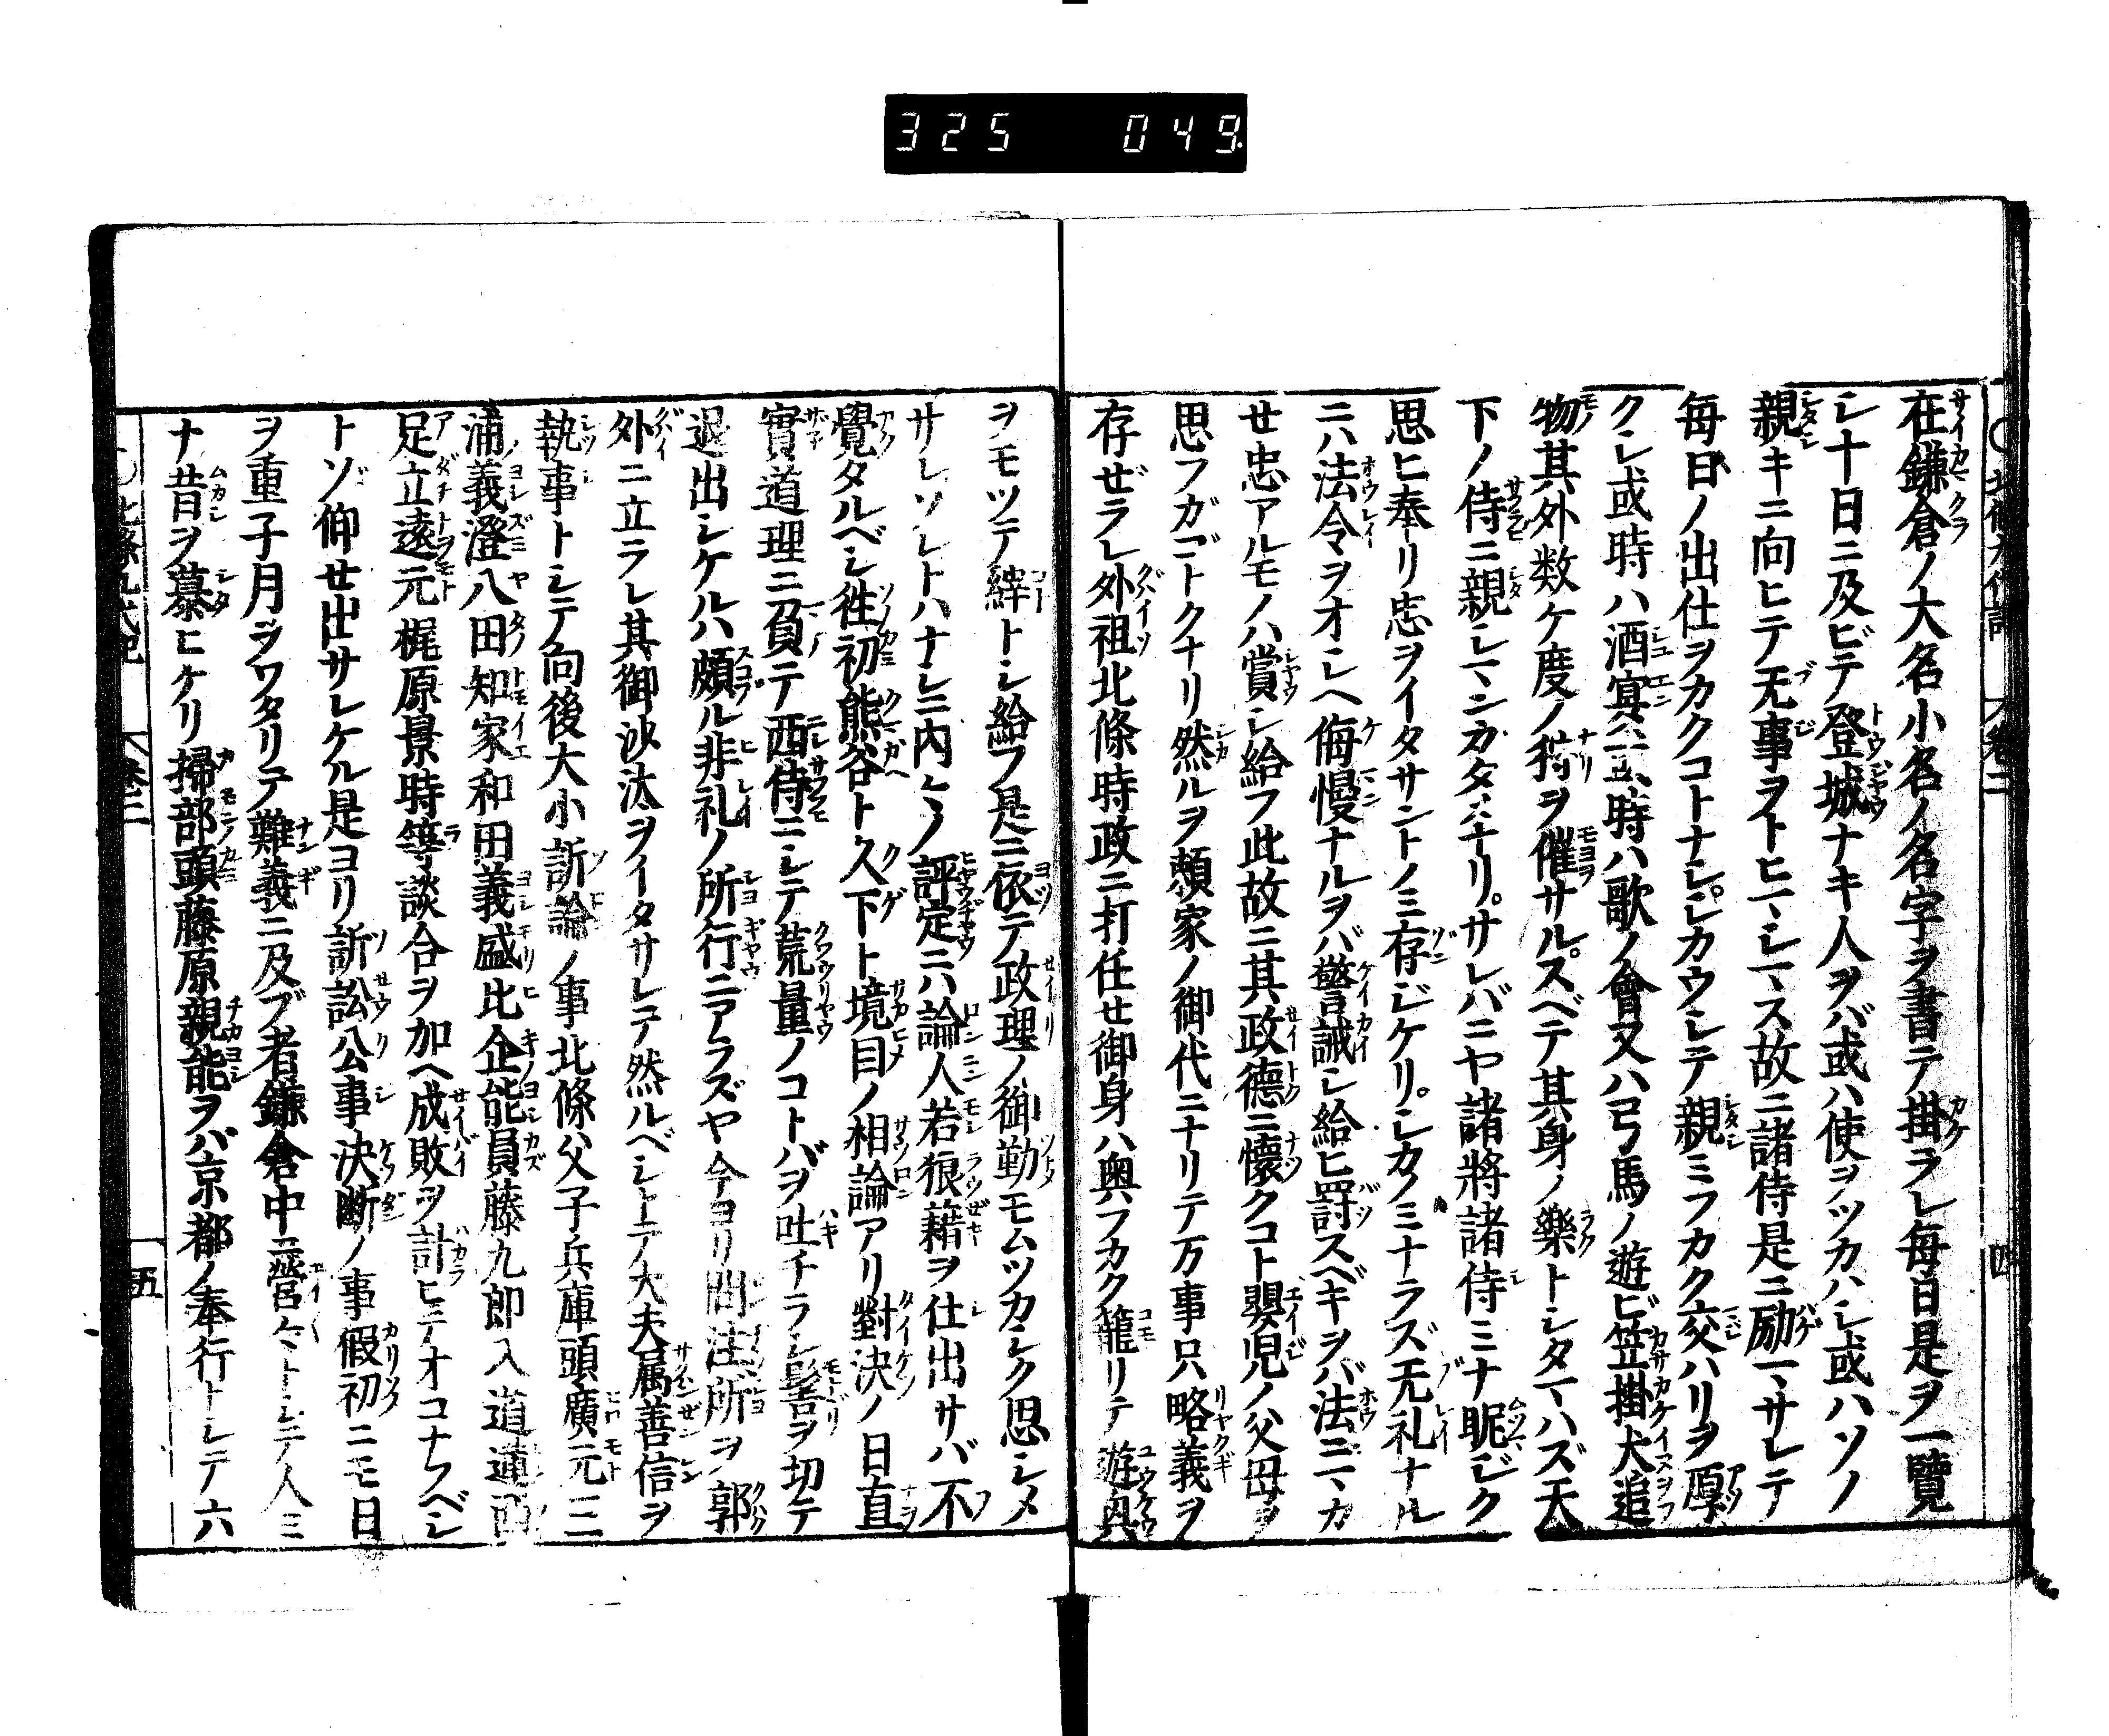 325 049
在鎌倉ノ大名小名ノ名字ヲ書テ掛ラレ毎日是ヲ一覽
シ十日ニ及ビテ登城ナキ人ヲバ或ハ使ヲツカハシ或ハソノ
親キニ向ヒテ无事ヲトヒマシマス故ニ諸侍是ニ励マサレテ
毎日ノ出仕ヲカクコトナシ。シカウシテ親ミフカク交ハリヲ厚
クシ或時ハ酒宴或時ハ歌ノ會又ハ弓馬ノ遊ビ笠掛犬追
物其外数ケ度ノ狩ヲ催サル。スベテ其身ノ樂トシタマハズ天
下ノ侍ニ親シマシカタメナリ。サレバニヤ諸將諸侍ミナ眤ジク
思ヒ奉リ忠ヲイタサントノミ存ジケリ。シカノミナラズ无礼ナル
ニハ法令ヲオシヘ侮慢ナルヲバ警誡シ給ヒ罸スベキヲバ法ニマカ
せ忠アルモノハ賞シ給フ此故ニ其政德ニ懷クコト嬰児ノ父母ヲ
思フガゴトクナリ然ルヲ頼家ノ御代ニナリテ万事只略義ヲ
存ぜラレ外祖北條時政ニ打任せ御身ハ奥フカク籠リテ遊興
ヲモツテ縡トシ給フ是ニ依テ政理ノ御勤モムツカシク思シメ
サレソレトハナシニ内々ノ評定ニハ論人若狼藉ヲ仕出サバ不
覺タルベシ徃初熊谷ト久下ト境目ノ相論アリ對決ノ日直
實道理ニ負テ西侍ニシテ荒量ノコトバヲ吐チラシ髻ヲ切テ
退出シケルハ頗ル非礼ノ所行ニアラズヤ今ヨリ問注所ヲ郭
外ニ立ラレ其御沙汰ヲイタサレテ然ルベシトテ大夫属善信ヲ
執事トシテ向後大小訴論ノ事北條父子兵庫頭廣元三
浦義澄八田知家和田義盛比企能員藤九郎入道蓮西
足立遠元梶原景時等談合ヲ加ヘ成敗ヲ計ヒテオコナフベシ
トゾ仰せ出サレケル是ヨリ訴訟公事決断ノ事假初ニモ日
ヲ重子月ヲワタリテ難義ニ及ブ者鎌倉中ニ營々トシテ人ミ
ナ昔ヲ慕ヒケリ掃部頭藤原親能ヲバ京都ノ奉行トシテ六
北條九代記 卷二 五